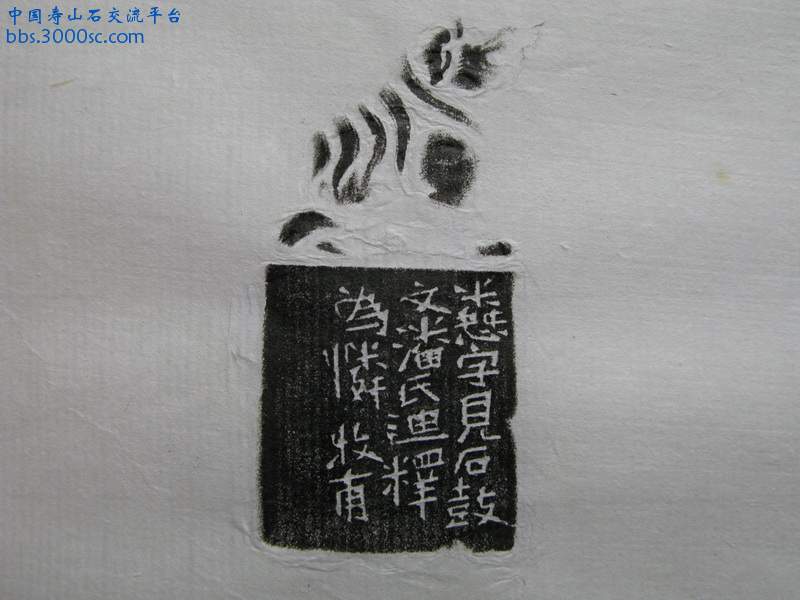 中国寿山石交流平台
bbs.3000sc.com
字見石鼓
文潘氏迪釋
為憐牧甫